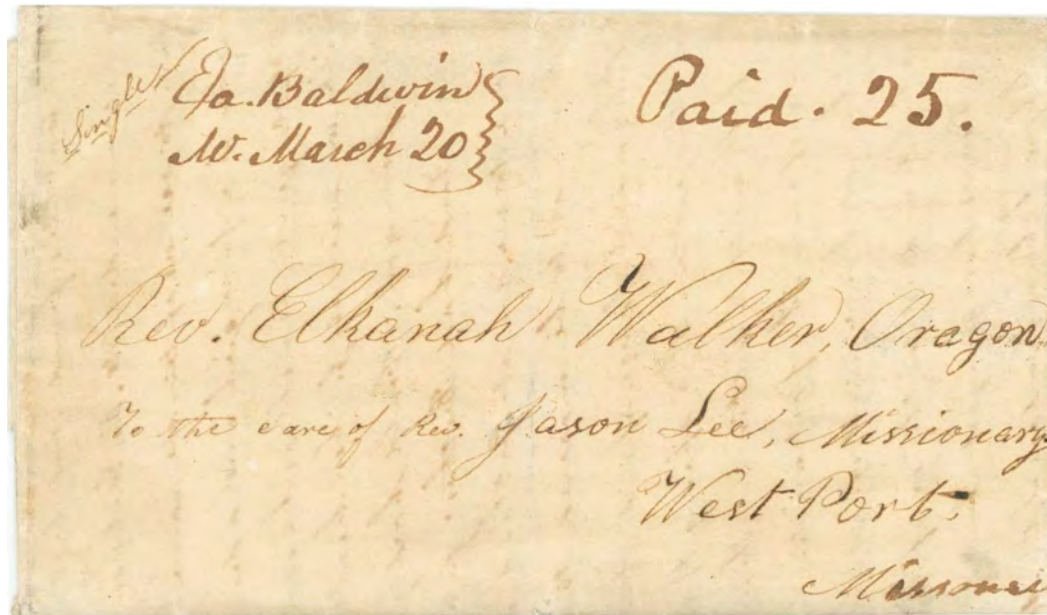 Single
Ea. Baldwin
Me. March 20
Paid. 25.
Rev. Elkanah Walker, Oragon
To the care of Rev. Jason Lee, Missionary
West Port.
Missouri